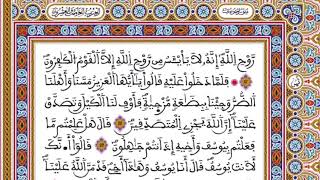 رَّوْحِ ٱللَّهِ إِنَّهُۥ لَا يَا۟يْـَٔسُ مِن رَّوْحِ ٱللَّهِ إِلَّا ٱلْقَوْمُ ٱلْكَٰفِرُونَ
فَلَمَّا دَخَلُوا۟ عَلَيْهِ قَالُوا۟ يَٰٓأَيُّهَا ٱلْعَزِيزُ مَسَّنَا وَأَهْلَنَا
ٱلضُّرُّ وَجِئْنَا بِبِضَٰعَةٍ مُّزْجَىٰةٍ فَأَوْفِ لَنَا ٱلْكَيْلَ وَتَصَدَّقْ
عَلَيْنَآ إِنَّ ٱللَّهَ يَجْزِى ٱلْمُتَصَدِّقِينَ قَالَ هَلْ عَلِمْتُم مَّا
فَعَلْتُم بِيُوسُفَ وَأَخِيهِ إِذْ أَنتُمْ جَٰهِلُونَ قَالُوٓا۟ أَءِنَّكَ
لَأَنتَ يُوسُفُ قَالَ أَنَا۠ يُوسُفُ وَهَٰذَآ أَخِى قَدْ مَنَّ ٱللَّهُ عَلَيْنَآ